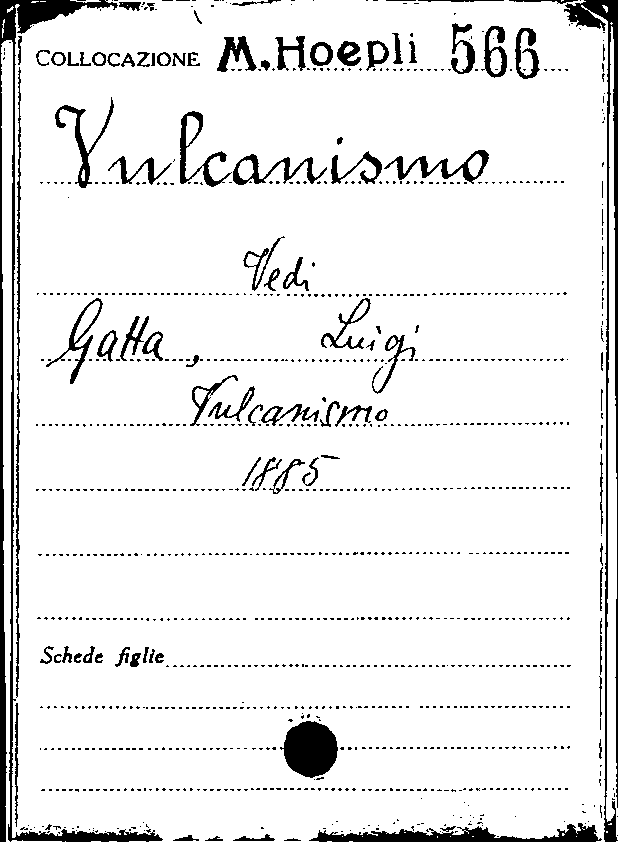 COLLOCAZIONE M. Hoepli 566
Vulcanismo
Vedi
Gatta, Luigi
Vulcanismo
1885
Schede figlie